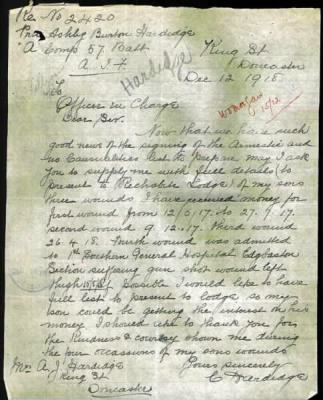 Re. No 2420
Pte Ashby Burton Hardidge
"A" Comp 57. Batt
A.I.F
King St
Doncaster
Dec 12 1918
Hardidge
To
Officer in Charge
Dear Sir.
Now that we have such
good news of the signing of the Armestic and
no Causualties lest to Prepare may I ask
you to supply me with full details (to
present to Rechabite Lodge) of my sons
three wounds. I have received money for
first wound from 12/6/17. to 27.9.17.
second wound 9.12.17. third wound
26.4.18. Fourth wound was admitted
to 1st Southern General Hospital Edgbaston
Section suffering gun shot wound left
thigh if possible I would like to have
full list to present to lodge so my
son could be getting the interest on his
money I should like to thank you for
the Kindness & courtesy shown me during
the four occassions of my sons wounds
Yours sincerely
Mr A. J. Hardidge
C Hardidge
King St
Doncaster